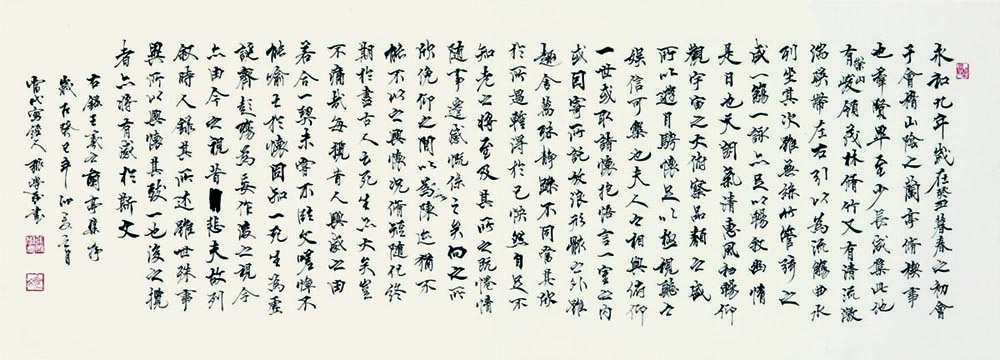 永和九年歲在癸丑暮春之初會
于會稽山陰之蘭亭脩禊事
也羣賢畢至少長咸集此地
有崇山峻領茂林脩竹又有清流激
湍暎帶左右引以為流觴曲水
列坐其次雖無絲竹管弦之
盛一觴一詠亦足以暢敘幽情
是日也天朗氣清惠風和暢仰
觀宇宙之大俯察品類之盛
所以遊目騁懷足以極視聽之
娛信可樂也夫人之相與俯仰
一世或取諸懷抱悟言一室之內
或因寄所託放浪形骸之外雖
趣舍萬殊靜躁不同當其欣
於所遇暫得於己快然自足不
知老之將至及其所之既惓情
隨事遷感慨係之矣向之所
欣俛仰之間以為陳迹猶不
能不以之興懷況脩短隨化終
期於盡古人云死生亦大矣豈
不痛哉每攬昔人興感之由
若合一契未嘗不臨文嗟悼不
能喻之於懷固知一死生為虛
誕齊彭殤為妄作後之視今
亦由今之視昔悲夫故列
敘時人錄其所述雖世殊事
異所以興懷其致一也後之攬
者亦將有感於斯文
右錄王羲之蘭亭集序
歲在癸巳年
當代寫經人書